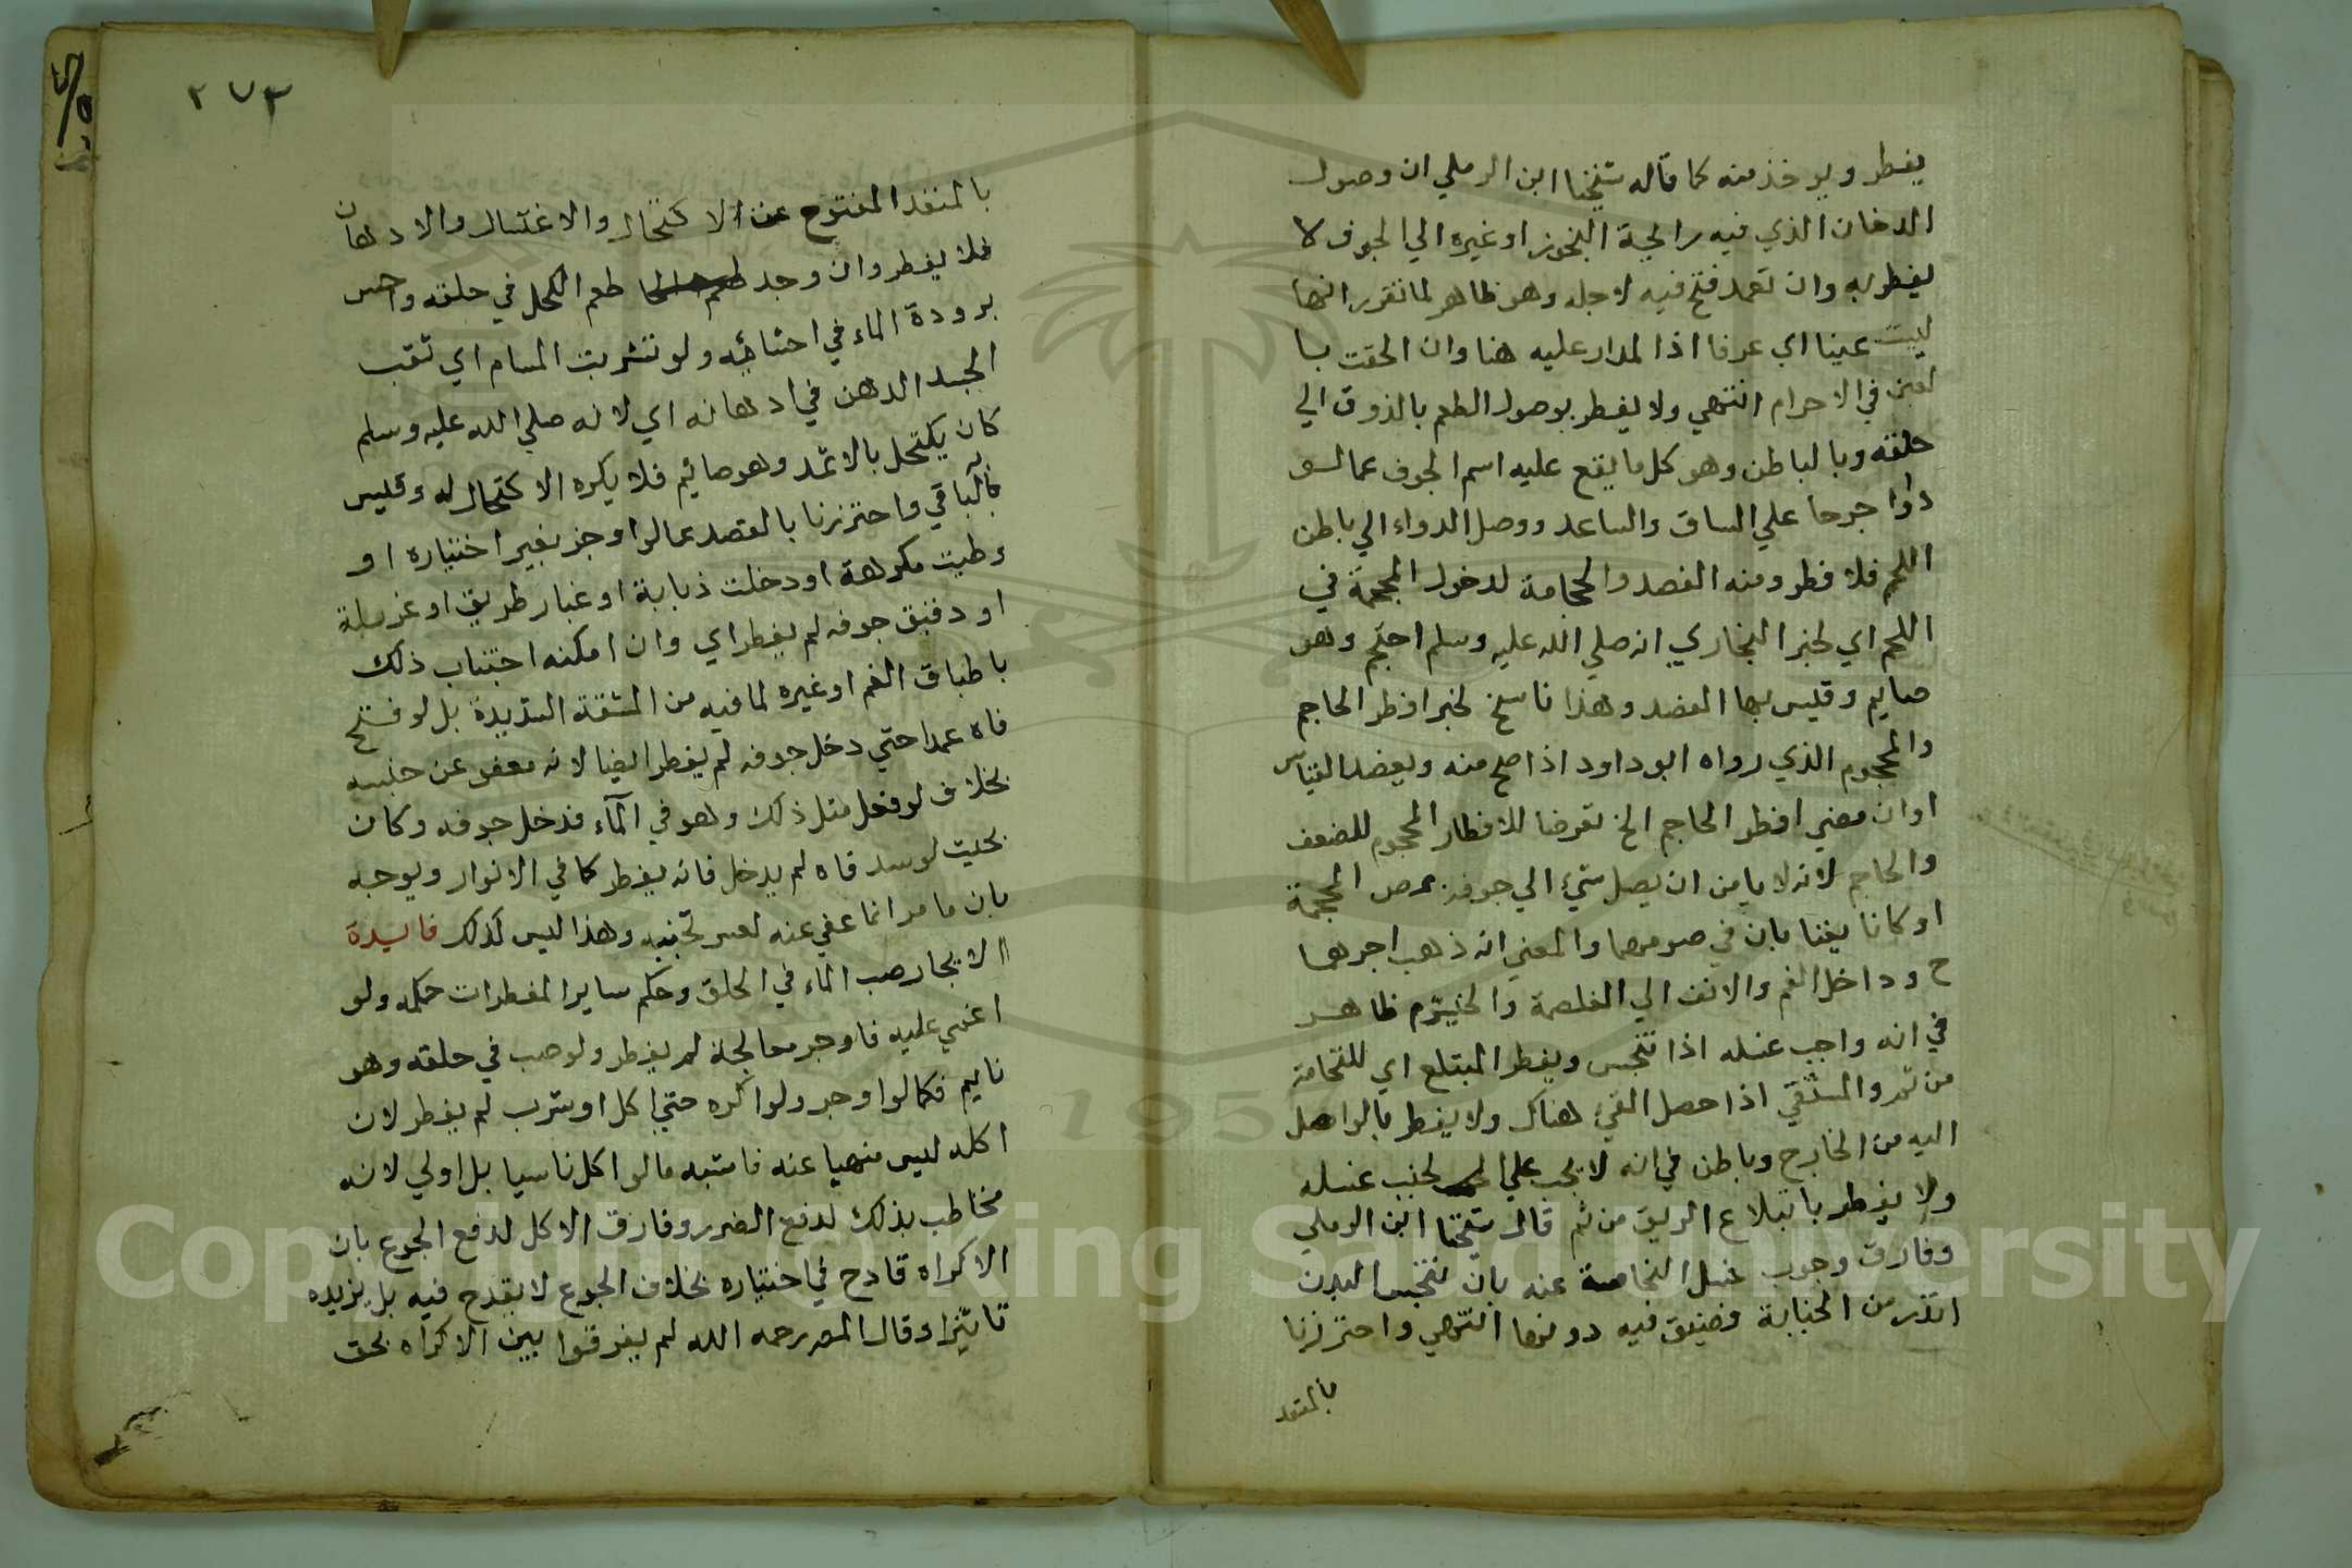 يفطر ويوخذ منه كما قاله شيخنا ابن الرملي ان وصول
الدخان الذي فيه رايحة البخور او غيره الي الجوف لا
يفطر به وان تعمد فتح فيه لاجله وهو ظاهر لما تقرر انها
ليست عينا اي عرفا اذا المدار عليه هنا وان الحقت بـا
لعين في الاحرام انتهي ولا يفطر بوصول الطعم بالذوق الي
حلقه وبالباطن وهو كل ما يقع عليه اسم الجوف عما لـو
داوا جرحا علي الساق والساعد ووصل الدواء الي باطن
اللحم فلا فطر ومنه الفصد والحجامة لدخول المحجمة في
اللحم اي لخبر البخاري انه صلي الله عليه وسلم احتجم وهو
صايم وقليس بها الفصد وهذا ناسخ لخبر افطر الحاجم
والمحجوم الذي رواه ابو داود اذا صح منه ويعضد القياس
او ان معني افطر الحاجم الخ تعرضا للافطار المحجوم للضعف
والحاجم لانه لا يامن ان يصل شيء الي جوفه بمص المحجمة
او كانا يغتابان في صومهما والمعني انه ذهب اجرهما
ح وداخل الفم والانف الي الغلصمة والخيشوم ظاهـر
في انه واجب غسله اذا تنجس ويفطر المبتلع اي للنخامة
من ثم والمستقي اذا حصل القيء هناك ولا يفطر بالواصل
اليه من الخارج وباطن في انه لا يجب علي الجنب غسله
ولا يفطر بابتلاع الريق من ثم قال شيخنا ابن الرملي
وفارق وجوب غسل النجاسة عنه بان تنجس البدن
اندر من الجنابة فضيق فيه دونها انتهي واحترزنا
بالمنفذ
٢٧٣
بالمنفذ المفتوح عن الاكتحال والاغتسال والادهان
فلا يفطر وان وجد طعم الكحل في حلقه واحس
برودة الماء في احشائه ولو تشربت المسام اي ثقب
الجسد الدهن في ادهانه اي لانه صلي الله عليه وسلم
كان يكتحل بالاثمد وهو صايم فلا يكره الاكتحال له وقليس
بالباقي واحترزنا بالقصد عما لو اوجر بغير اختياره او
وطيت مكرهة او دخلت ذبابة او غبار طريق او غربلة
او دقيق جوفه لم يفطر اي وان امكنه اجتناب ذلك
باطباق الفم او غيره لما فيه من المشقة الشديدة بل لو فتح
فاه عمدا حتي دخل جوفه لم يفطر ايضا لانه معفو عن جنسه
بخلاف لو فعل مثل ذلك وهو في الماء فدخل جوفه وكان
بحيث لو سد فاه لم يدخل فانه يفطر كما في الانوار ويوجه
بان ما مر انما عفي عنه لعسر تجنبه وهذا ليس كذلك فايدة
الايجار صب الماء في الحلق وحكم ساير المفطرات حكمه ولو
اغمي عليه فاوجر معالجة لم يفطر ولو صب في حلقه وهو
نايم فكما لو اوجر ولو اكره حتي اكل او شرب لم يفطر لان
اكله ليس منهيا عنه فاشبه ما لو اكل ناسيا بل اولي لانه
مخاطب بذلك لدفع الضرر وفارق الاكل لدفع الجوع بان
الاكراه قادح في اختياره بخلاف الجوع لا يقدح فيه بل يزيده
تاثيرا وقال المصر رحمه الله لم يفرقوا بين الاكراه بحق
Copyright © King Saud University
1957